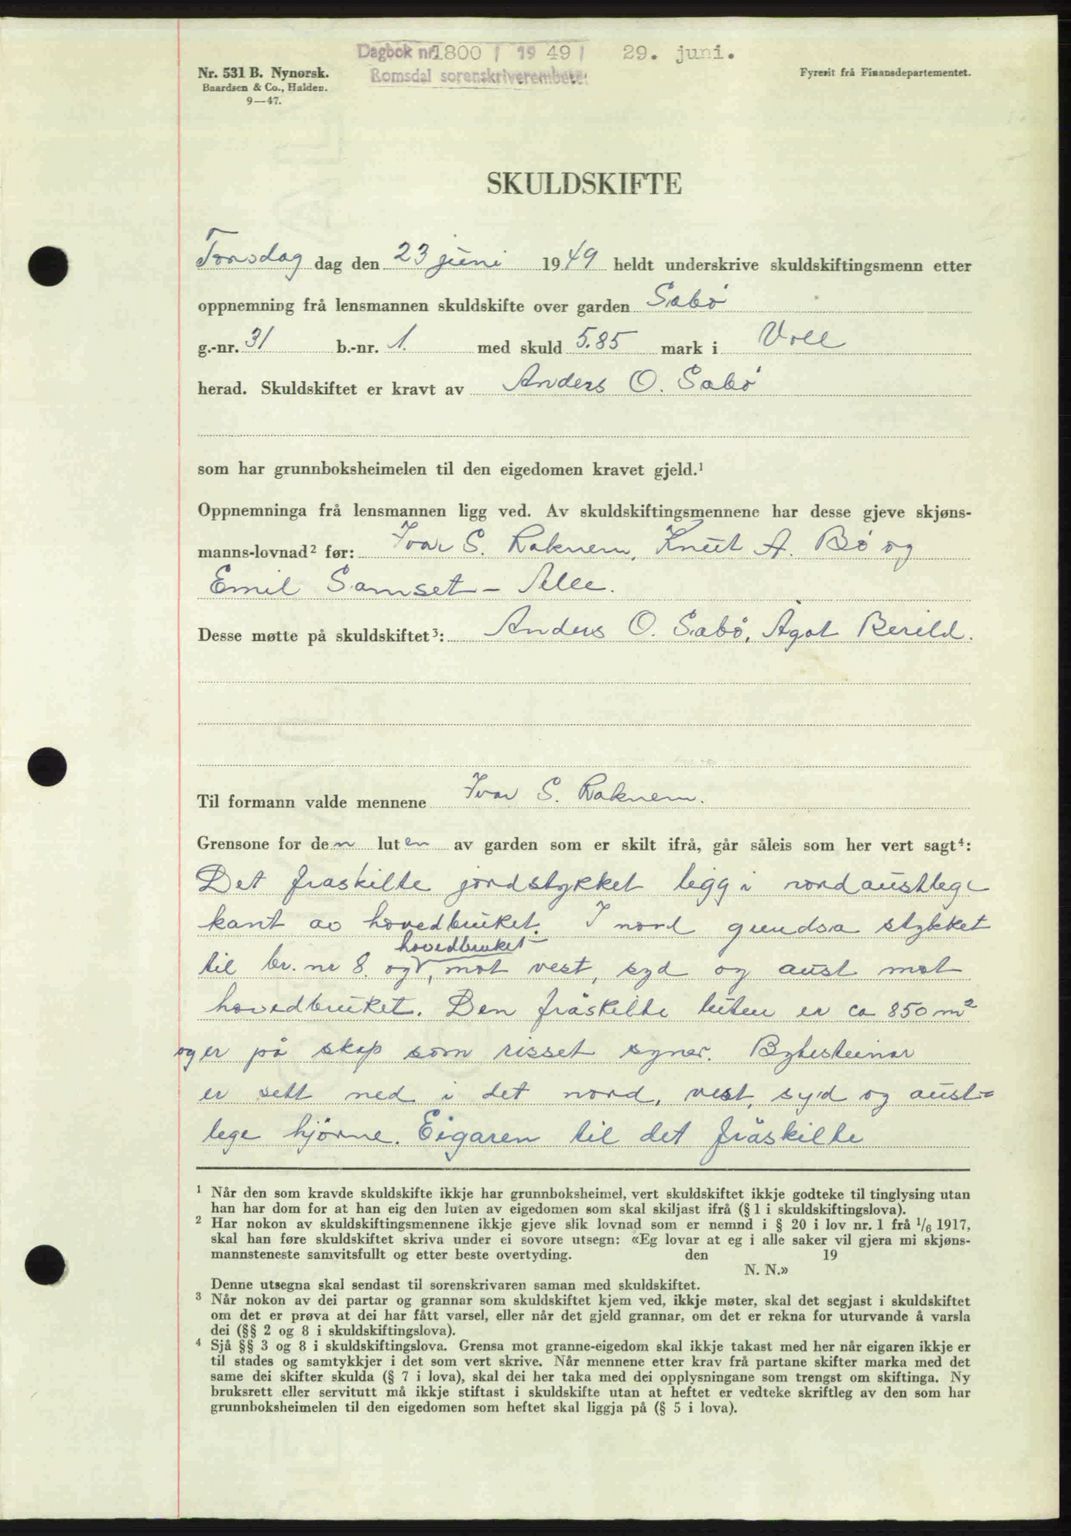 Dagbok nr. 1800 / 19 49 / 29. juni.
Romsdal sorenskriverembete
Nr. 531 B. Nynorsk.
Baardsen & Co., Halden.
9—47.
Fyresit frå Finansdepartementet.
SKULDSKIFTE
Torsdag dag den 23 juni 1949 heldt underskrive skuldskiftingsmenn etter
oppnemning frå lensmannen skuldskifte over garden Sæbø
g.-nr. 31 b.-nr. 1. med skuld 5.85 mark i Voll
herad. Skuldskiftet er kravt av Anders O. Sæbø
som har grunnboksheimelen til den eigedomen kravet gjeld.¹
Oppnemninga frå lensmannen ligg ved. Av skuldskiftingsmennene har desse gjeve skjøns-
manns-lovnad² før: Ivar S. Raknem, Knut A. Bø og
Emil Samset – Alle.
Desse møtte på skuldskiftet³: Anders O. Sæbø, Ågot Berild.
Til formann valde mennene Ivar S. Raknem.
Grensone for den luten av garden som er skilt ifrå, går såleis som her vert sagt⁴:
Det fraskilte jordstykket legg i nordaustlege
kant av hovedbruket. I nord grensa stykket
hovedbruket
til br. nr 8. og, mot vest, syd og aust mot
hovedbruket. Den fråskilte luten er ca 850 m²
og er på skap som risset syner. Bytesteinar
er sett ned i det nord, vest, syd og aust-
lege hjørne. Eigaren til det fråskilte
¹ Når den som kravde skuldskifte ikkje har grunnboksheimel, vert skuldskiftet ikkje godteke til tinglysing utan
han har dom for at han eig den luten av eigedomen som skal skiljast ifrå (§ 1 i skuldskiftingslova).
² Har nokon av skuldskiftingsmennene ikkje gjeve slik lovnad som er nemnd i § 20 i lov nr. 1 frå 1/6 1917,
skal han føre skuldskiftet skriva under ei sovore utsegn: «Eg lovar at eg i alle saker vil gjera mi skjøns-
mannsteneste samvitsfullt og etter beste overtyding. den 19
N. N.»
Denne utsegna skal sendast til sorenskrivaren saman med skuldskiftet.
³ Når nokon av dei partar og grannar som skuldskiftet kjem ved, ikkje møter, skal det segjast i skuldskiftet
om det er prøva at dei har fått varsel, eller når det gjeld grannar, om det er rekna for uturvande å varsla
dei (§§ 2 og 8 i skuldskiftingslova).
⁴ Sjå §§ 3 og 8 i skuldskiftingslova. Grensa mot granne-eigedom skal ikkje takast med her når eigaren ikkje er
til stades og samtykkjer i det som vert skrive. Når mennene etter krav frå partane skifter marka med det
same dei skifter skulda (§ 7 i lova), skal dei her taka med dei opplysningane som trengst om skiftinga. Ny
bruksrett eller servitutt må ikkje stiftast i skuldskifte utan at heftet er vedteke skriftleg av den som har
grunnboksheimelen til den eigedomen som heftet skal liggja på (§ 5 i lova).